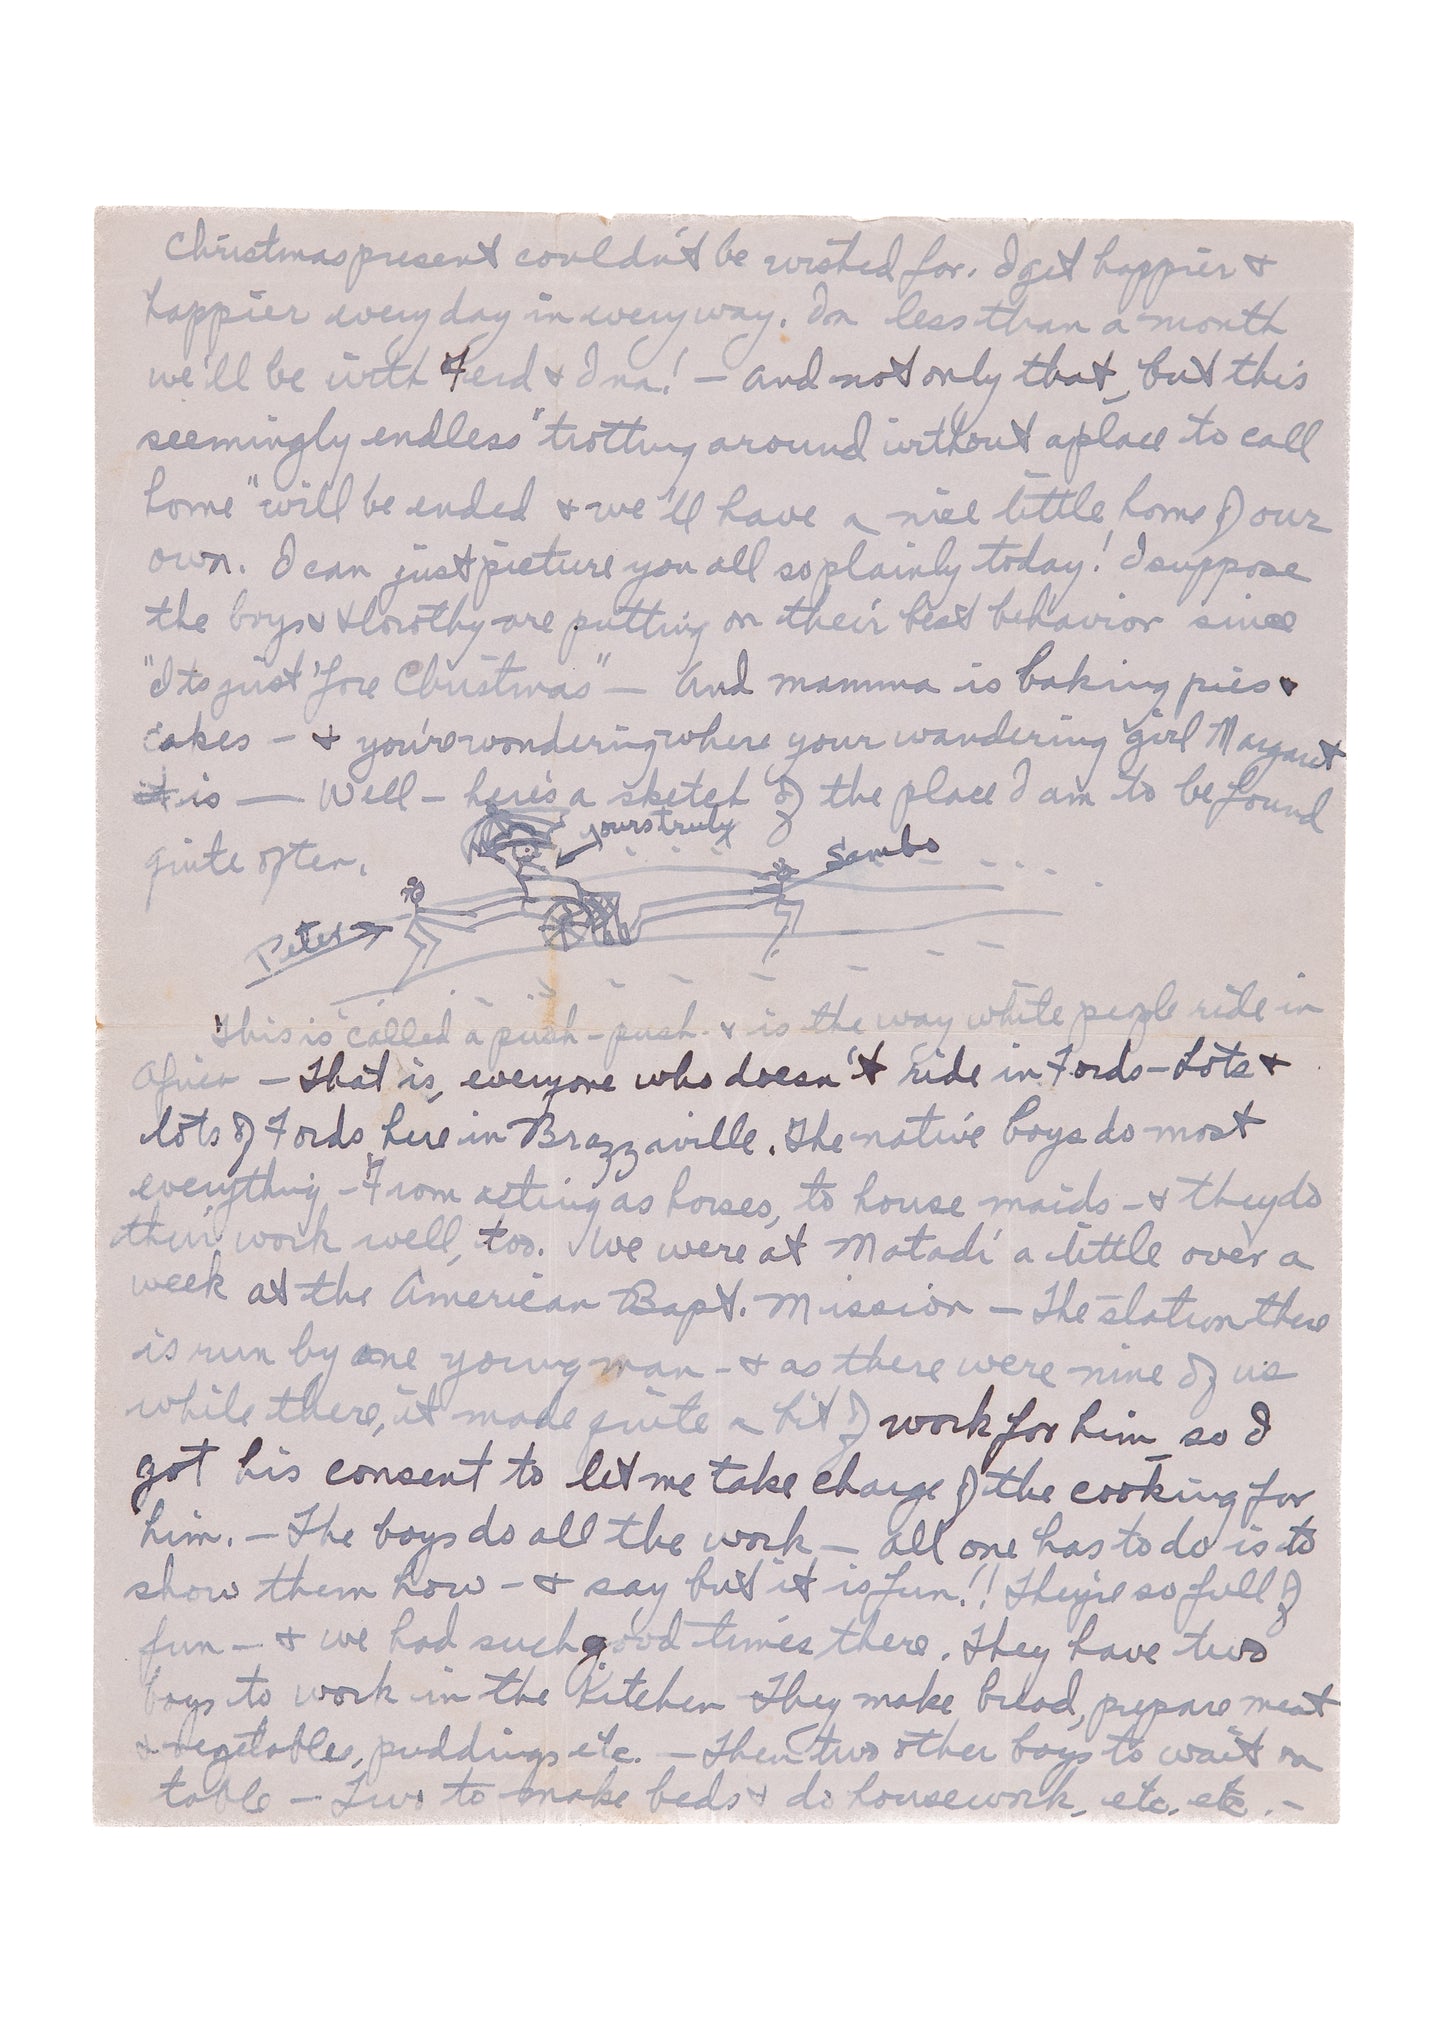 Christmas present couldn't be wished for. I get happier &
happier every day in every way. In less than a month
we'll be with Ferd & Ina! — And not only that, but this
seemingly endless "trotting around without a place to call
home" will be ended & we'll have a nice little home of our
own. I can just picture you all so plainly today! I suppose
the boys & Dorothy are putting on their best behavior since
"Its just 'fore Christmas" — And mamma is baking pies &
cakes — & you're wondering where your wandering girl Margaret
it is — Well — here's a sketch of the place I am to be found
quite often.
yours truly
Sambo
Peter
This is called a push-push — & is the way white people ride in
Africa — That is, everyone who doesn't ride in Fords — Lots &
lots of Fords here in Brazzaville. The native boys do most
everything — From acting as horses, to house maids — & they do
their work well, too. We were at Matadi a little over a
week at the American Bapt. Mission — The station there
is run by one young man — & as there were nine of us
while there, it made quite a bit of work for him so I
got his consent to let me take charge of the cooking for
him. — The boys do all the work — all one has to do is to
show them how — & say but it is fun!! They're so full of
fun — & we had such good times there. They have two
boys to work in the kitchen They make bread, prepare meat
& vegetables, puddings etc. — Then two other boys to wait on
table — Two to make beds & do housework, etc. etc. —